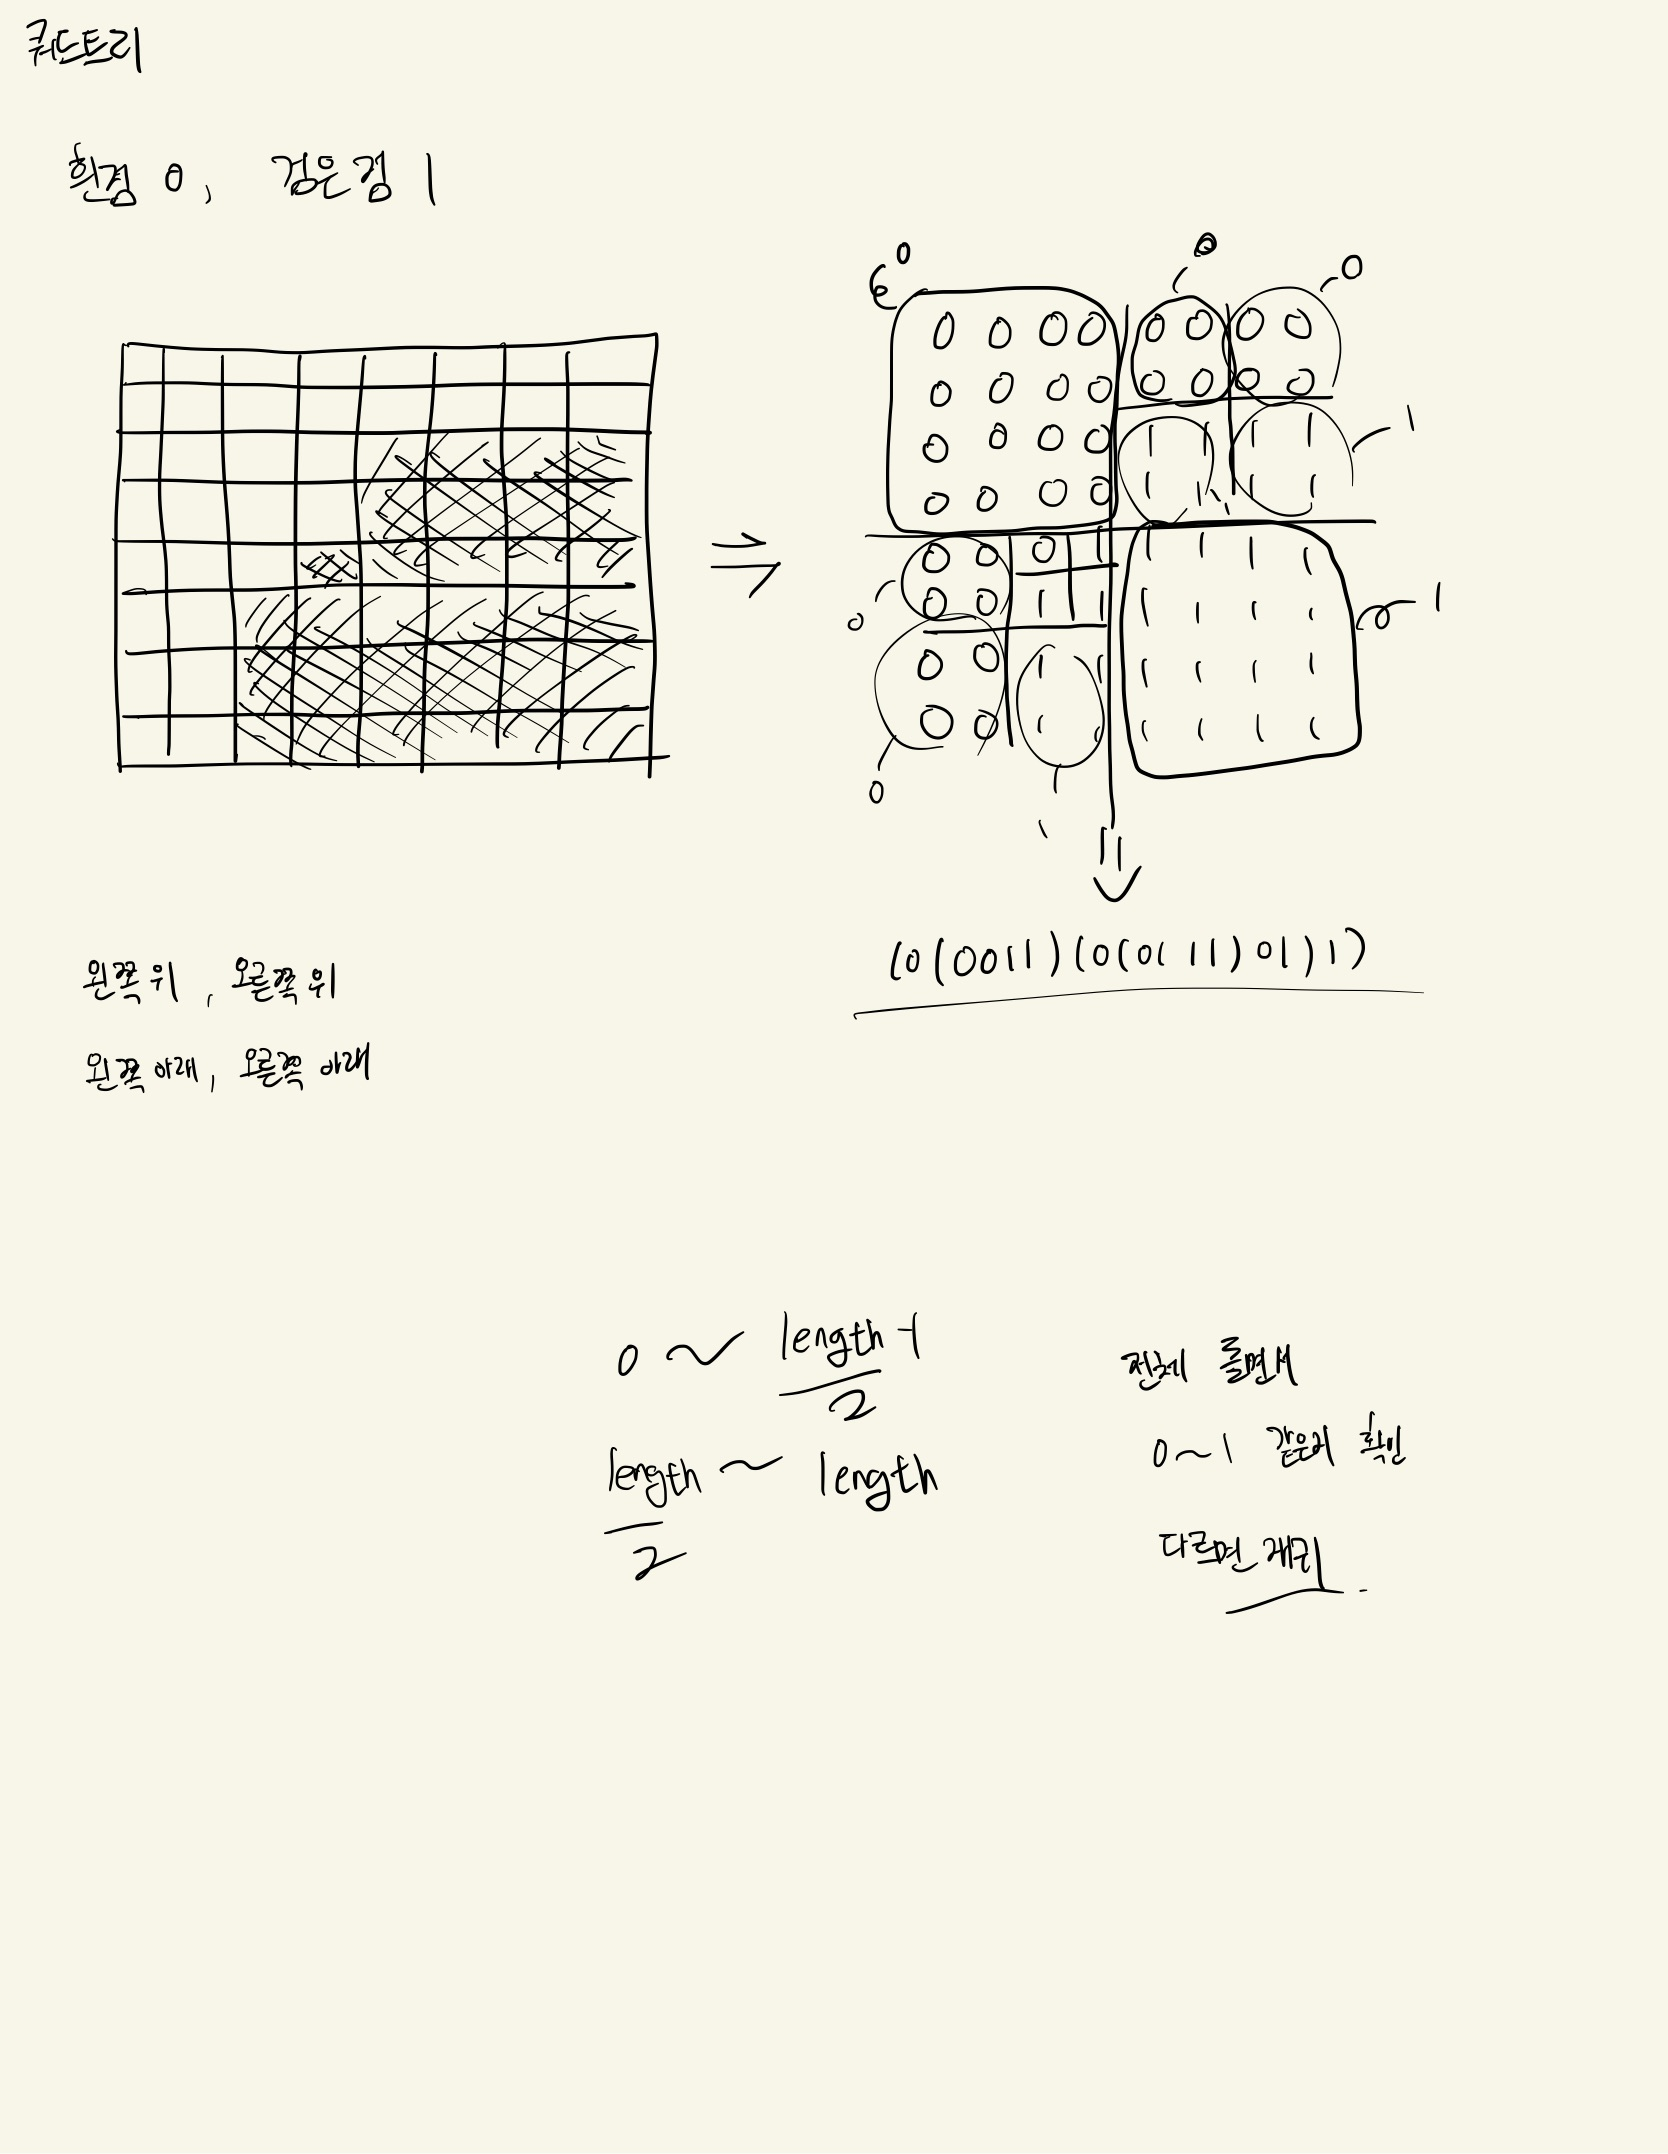 쿼드트리
흰점 0, 검은점 1
0 0 0
0 0 0 0 0 0 0 0
0 0 0 0 0 0 0 0
0 0 0 0 1 1 1 1 1
0 0 0 0 1 1 1 1 1
0 0 0 1 1 1 1 1
0 0 0 1 1 1 1 1 1 1
0 0 1 1 1 1 1 1
0 0 1 1 1 1 1 1
0 1
(0(0011)(0(0111)01)1)
왼쪽 위, 오른쪽 위
왼쪽 아래, 오른쪽 아래
0 ~ length-1
2
length ~ length
2
전체 돌면서
0~1 같은지 확인
다르면 재귀